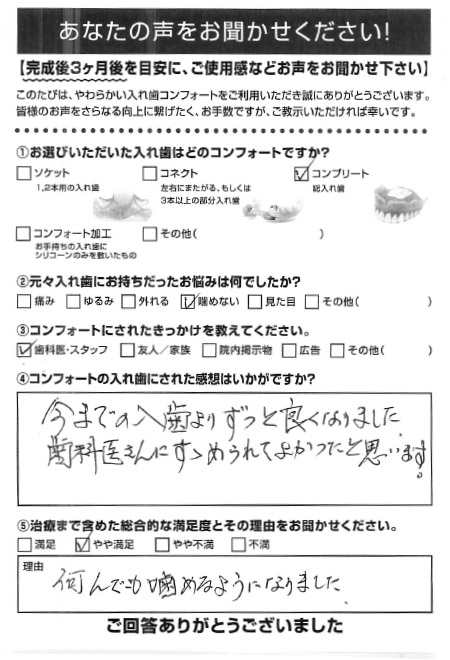 あなたの声をお聞かせください!
【完成後3ヶ月後を目安に、ご使用感などお声をお聞かせ下さい】
このたびは、やわらかい入れ歯コンフォートをご利用いただき誠にありがとうございます。
皆様のお声をさらなる向上に繋げたく、お手数ですが、ご教示いただければ幸いです。
①お選びいただいた入れ歯はどのコンフォートですか?
ソケット コネクト コンプリート
1,2本用の入れ歯 左右にまたがる、もしくは 総入れ歯
3本以上の部分入れ歯
コンフォート加工 その他( )
お手持ちの入れ歯に
シリコーンのみを敷いたもの
②元々入れ歯にお持ちだったお悩みは何でしたか?
痛み ゆるみ 外れる 噛めない 見た目 その他( )
③コンフォートにされたきっかけを教えてください。
歯科医・スタッフ 友人/家族 院内掲示物 広告 その他( )
④コンフォートの入れ歯にされた感想はいかがですか?
今までの入歯よりずっと良くなりました
歯科医さんにすゝめられてよかったと思います。
⑤治療まで含めた総合的な満足度とその理由をお聞かせください。
満足 やや満足 やや不満 不満
理由
何んでも噛めるようになりました
ご回答ありがとうございました